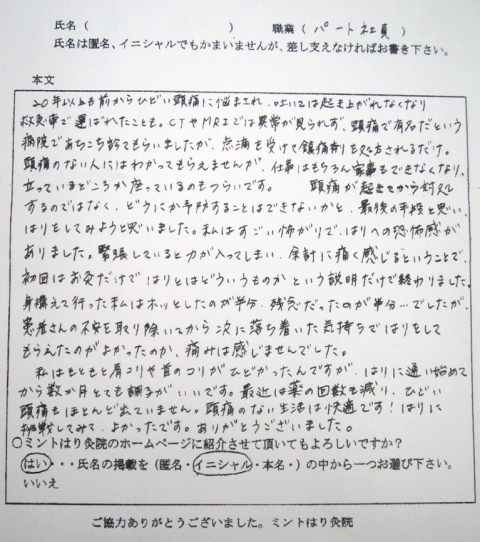 氏名（　　　　　　　　）　職業（パート社員）
氏名は匿名、イニシャルでもかまいませんが、差し支えなければお書き下さい。
本文
20年以上も前からひどい頭痛に悩まされ、吐いては起き上がれなくなり
救急車で運ばれたことも。CTやMRIでは異常が見られず、頭痛で有名だという
病院であちこち診てもらいましたが、点滴を受けて鎮痛剤を処方されるだけ。
頭痛のない人にはわかってもらえませんが、仕事はもちろん家事もできなくなり、
立っているどころか座っているのもつらいです。　頭痛が起きてから対処
するのではなく、どうにか予防することはできないかと、最後の手段と思い、
はりをしてみようと思いました。私はすごい怖がりで、はりへの恐怖感が
ありました。緊張していると力が入ってしまい、余計に痛く感じるということで、
初回はお灸だけではりとはどういうものかという説明だけで終わりました。
身構えて行った私はホッとしたのが半分、残念だったのが半分…でしたが、
患者さんの不安を取り除いてから次に落ち着いた気持ちではりをして
もらえたのがよかったのか、痛みは感じませんでした。
私はもともと肩コリや首のコリがひどかったんですが、はりに通い始めて
から数か月とても調子がいいです。最近は薬の回数も減り、ひどい
頭痛もほとんど出ていません。頭痛のない生活は快適です！はりに
挑戦してみて、よかったです。ありがとうございました。
○ミントはり灸院のホームページに紹介させて頂いてもよろしいですか？
はい・・・氏名の掲載を（匿名・イニシャル・本名・）の中から一つお選び下さい。
いいえ
ご協力ありがとうございました。ミントはり灸院